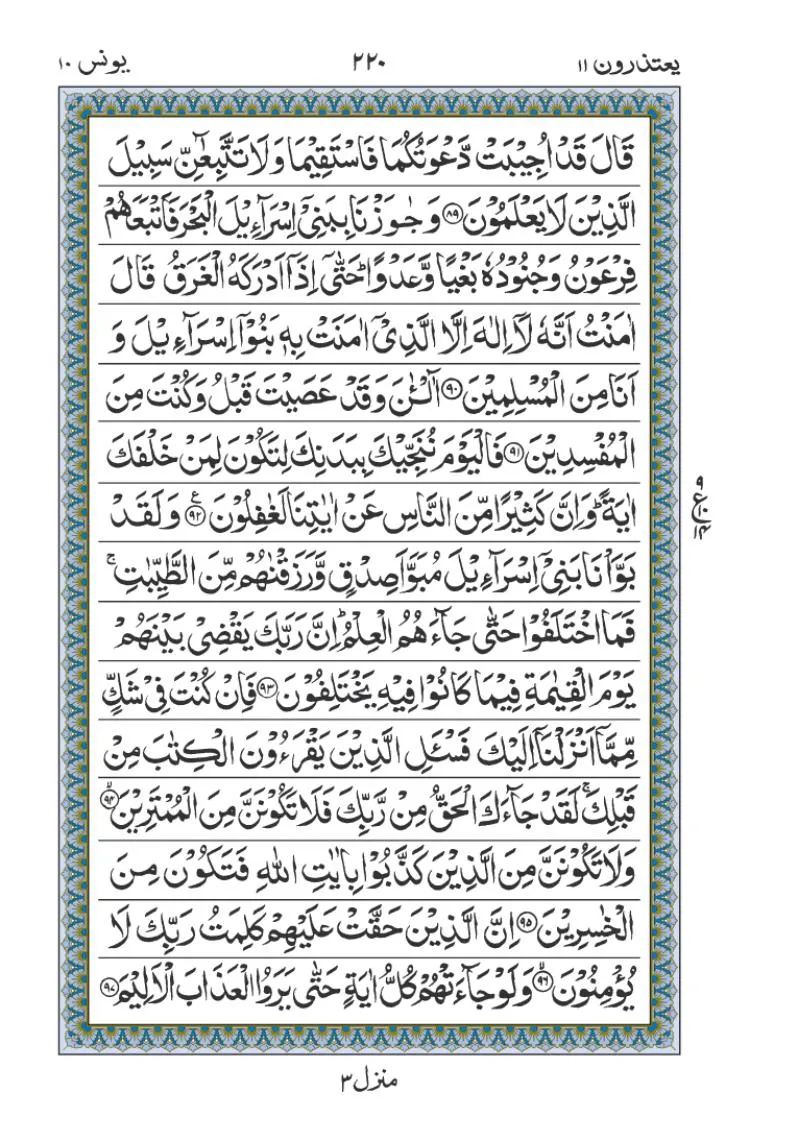 يعتذرون ١١
٢٢٠
يونس ١٠
قَالَ قَدْ اُجِيْبَتْ دَّعْوَتُكُمَا فَاسْتَقِيْمَا وَ لَا تَتَّبِعٰٓنِّ سَبِيْلَ
الَّذِيْنَ لَا يَعْلَمُوْنَ ﴿۸۹﴾ وَ جٰوَزْنَا بِبَنِيْۤ اِسْرَآءِيْلَ الْبَحْرَ فَاَتْبَعَهُمْ
فِرْعَوْنُ وَ جُنُوْدُهٗ بَغْيًا وَّ عَدْوًا ؕ حَتّٰۤى اِذَاۤ اَدْرَكَهُ الْغَرَقُ قَالَ
اٰمَنْتُ اَنَّهٗ لَاۤ اِلٰهَ اِلَّا الَّذِيْۤ اٰمَنَتْ بِهٖ بَنُوْۤا اِسْرَآءِيْلَ وَ
اَنَا مِنَ الْمُسْلِمِيْنَ ﴿۹۰﴾ آٰلْـٰٔنَ وَ قَدْ عَصَيْتَ قَبْلُ وَ كُنْتَ مِنَ
الْمُفْسِدِيْنَ ﴿۹۱﴾ فَالْيَوْمَ نُنَجِّيْكَ بِبَدَنِكَ لِتَكُوْنَ لِمَنْ خَلْفَكَ
اٰيَةً ؕ وَ اِنَّ كَثِيْرًا مِّنَ النَّاسِ عَنْ اٰيٰتِنَا لَغٰفِلُوْنَ ﴿۹۲﴾ ع وَ لَقَدْ
بَوَّاْنَا بَنِيْۤ اِسْرَآءِيْلَ مُبَوَّاَ صِدْقٍ وَّ رَزَقْنٰهُمْ مِّنَ الطَّيِّبٰتِ ۚ
فَمَا اخْتَلَفُوْا حَتّٰى جَآءَهُمُ الْعِلْمُ ؕ اِنَّ رَبَّكَ يَقْضِيْ بَيْنَهُمْ
يَوْمَ الْقِيٰمَةِ فِيْمَا كَانُوْا فِيْهِ يَخْتَلِفُوْنَ ﴿۹۳﴾ فَاِنْ كُنْتَ فِيْ شَكٍّ
مِّمَّاۤ اَنْزَلْنَاۤ اِلَيْكَ فَسْـَٔلِ الَّذِيْنَ يَقْرَءُوْنَ الْكِتٰبَ مِنْ
قَبْلِكَ ۚ لَقَدْ جَآءَكَ الْحَقُّ مِنْ رَّبِّكَ فَلَا تَكُوْنَنَّ مِنَ الْمُمْتَرِيْنَ ﴿۹۴﴾ۙ
وَ لَا تَكُوْنَنَّ مِنَ الَّذِيْنَ كَذَّبُوْا بِاٰيٰتِ اللّٰهِ فَتَكُوْنَ مِنَ
الْخٰسِرِيْنَ ﴿۹۵﴾ اِنَّ الَّذِيْنَ حَقَّتْ عَلَيْهِمْ كَلِمَتُ رَبِّكَ لَا
يُؤْمِنُوْنَ ﴿۹۶﴾ۙ وَ لَوْ جَآءَتْهُمْ كُلُّ اٰيَةٍ حَتّٰى يَرَوُا الْعَذَابَ الْاَلِيْمَ ﴿۹۷﴾
منزل ٣